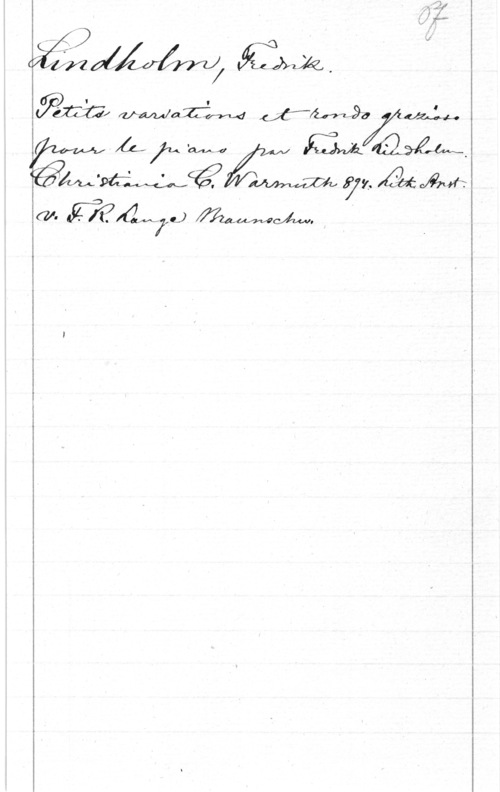 Pf
Lindholm, Fredrik.
Petits variations et rondo grazioso
pour le piano par Fredrik Lindholm.
Christiania C. Warmuth 894. Lith. Anst.
v. F. R. Lange Braunschw.